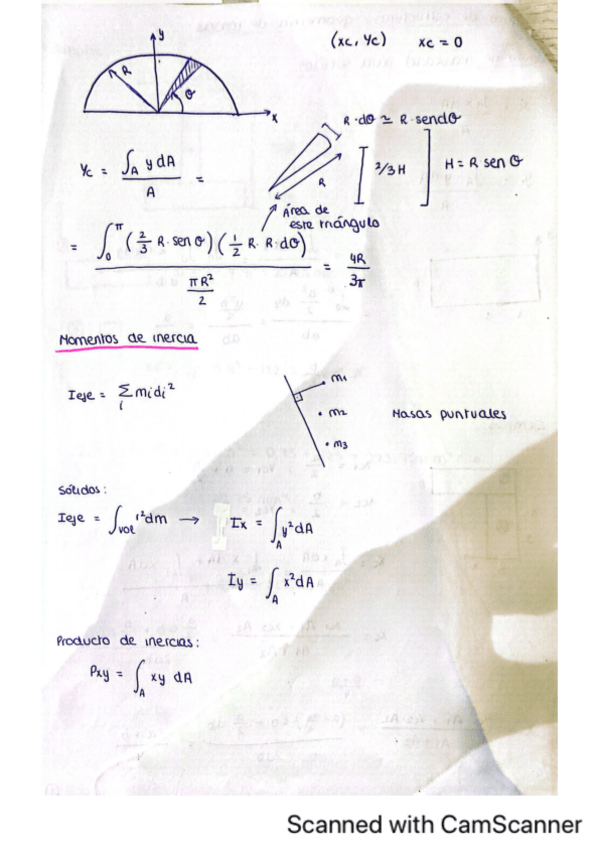 y
(xc, yc)    xc = 0
R
θ
x
R·dθ ≃ R·sendθ
yc = ∫A y dA / A =
R
2/3H
H = R sen θ
Área de
este triángulo
= ∫0^π (2/3 R·sen θ)(1/2 R·R·dθ) / (πR²/2) = 4R/3π
Momentos de inercia
Ieje = Σi midi²
m1
m2
m3
Masas puntuales
Sólidos:
Ieje = ∫vol r²dm → Ix = ∫A y²dA
Iy = ∫A x²dA
Producto de inercias:
Pxy = ∫A xy dA
Scanned with CamScanner